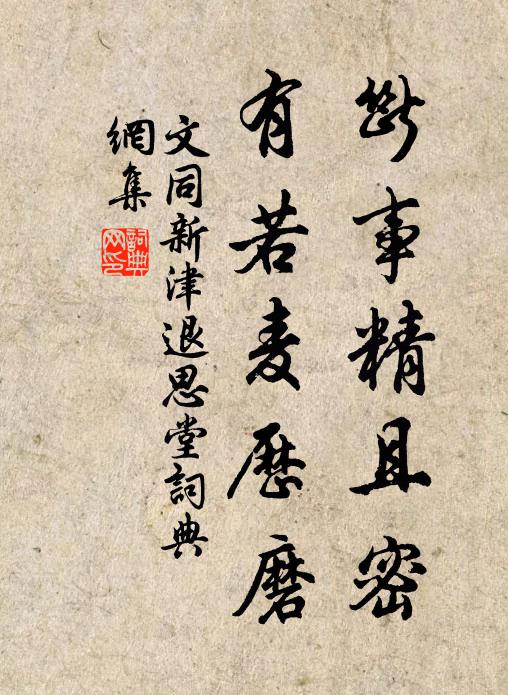 斷事精且密
有若麦歷磨
文同新津退思堂詞典
網集
詞典網印